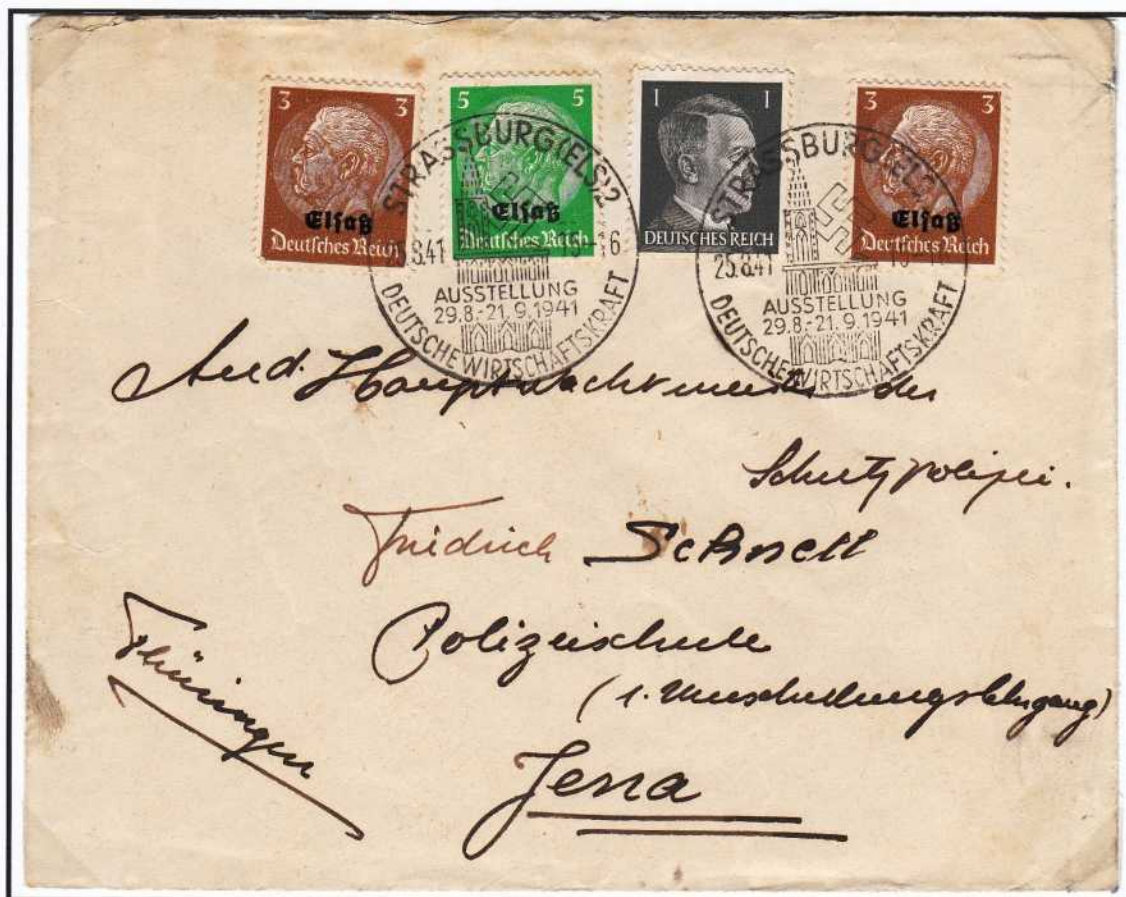 3 3
Elsaß
Deutsches Reich
5 5
Elsaß
Deutsches Reich
1 1
DEUTSCHES REICH
3 3
Elsaß
Deutsches Reich
STRASSBURG (ELS) 2
-16
AUSSTELLUNG
29.8.-21.9.1941
DEUTSCHE WIRTSCHAFTSKRAFT
STRASSBURG (ELS) 2
25.8.41
AUSSTELLUNG
29.8.-21.9.1941
DEUTSCHE WIRTSCHAFTSKRAFT
An d. Hauptwachtmeister der
Schutzpolizei.
Friedrich Schnell
Polizeischule
(1. Umschulungslehrgang)
Jena
Thüringen